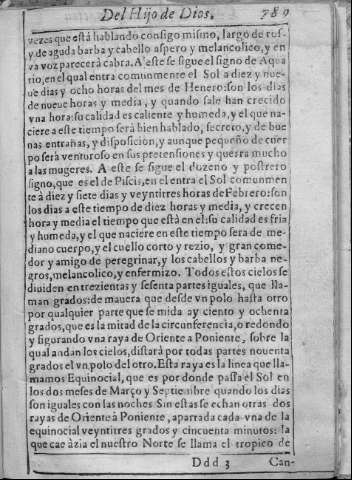 Del Hijo de Dios. 789
vezes que està hablando consigo mismo, largo de ros-
y de aguda barba y cabello aspero y melancolico, y en
va voz parecerá cabra. A este se sigue el signo de Aqua
rio, en el qual entra comunmente el Sol a diez y nue-
ue dias y ocho horas del mes de Henero: son los dias
de nueue horas y media, y quando sale han crecido
vna hora: su calidad es caliente y humeda, y el que na-
ciere a este tiempo será bien hablado, secreto, y de bue
nas entrañas, y disposicion, y aunque pequeño de cuer
po serà venturoso en sus pretensiones y querra mucho
a las mugeres. A este se sigue el duzeno y postrero
signo, que es el de Piscis, en el entra el Sol comunmen
te à diez y siete dias y veyntitres horas de Febrero: son
los dias a este tiempo de diez horas y media, y crecen
hora y media el tiempo que està en el: su calidad es fria
y humeda, y el que naciere en este tiempo sera de me-
diano cuerpo, y el cuello corto y rezio, y gran come-
dor y amigo de peregrinar, y los cabellos y barba ne-
gros, melancolico, y enfermizo. Todos estos cielos se
diuiden en trezientas y sesenta partes iguales, que lla-
man grados: de mauera que desde vn polo hasta otro
por qualquier parte que se mida ay ciento y ochenta
grados, que es la mitad de la circunferencia, o redondo
y sigurando vna raya de Oriente a Poniente, sobre la
qual andan los cielos, distará por todas partes nouenta
grados el vn polo del otro. Esta raya es la linea que lla-
mamos Equinocial, que es por donde passa el Sol en
los dos meses de Março y Septiembre quando los dias
son iguales con las noches Sin estas se echan otras dos
rayas de Oriente à Poniente, apartada cada vna de la
equinocial veyntitres grados y cincuenta minutos: la
que cae àzia el nuestro Norte se llama el tropico de
Ddd 3 Can-